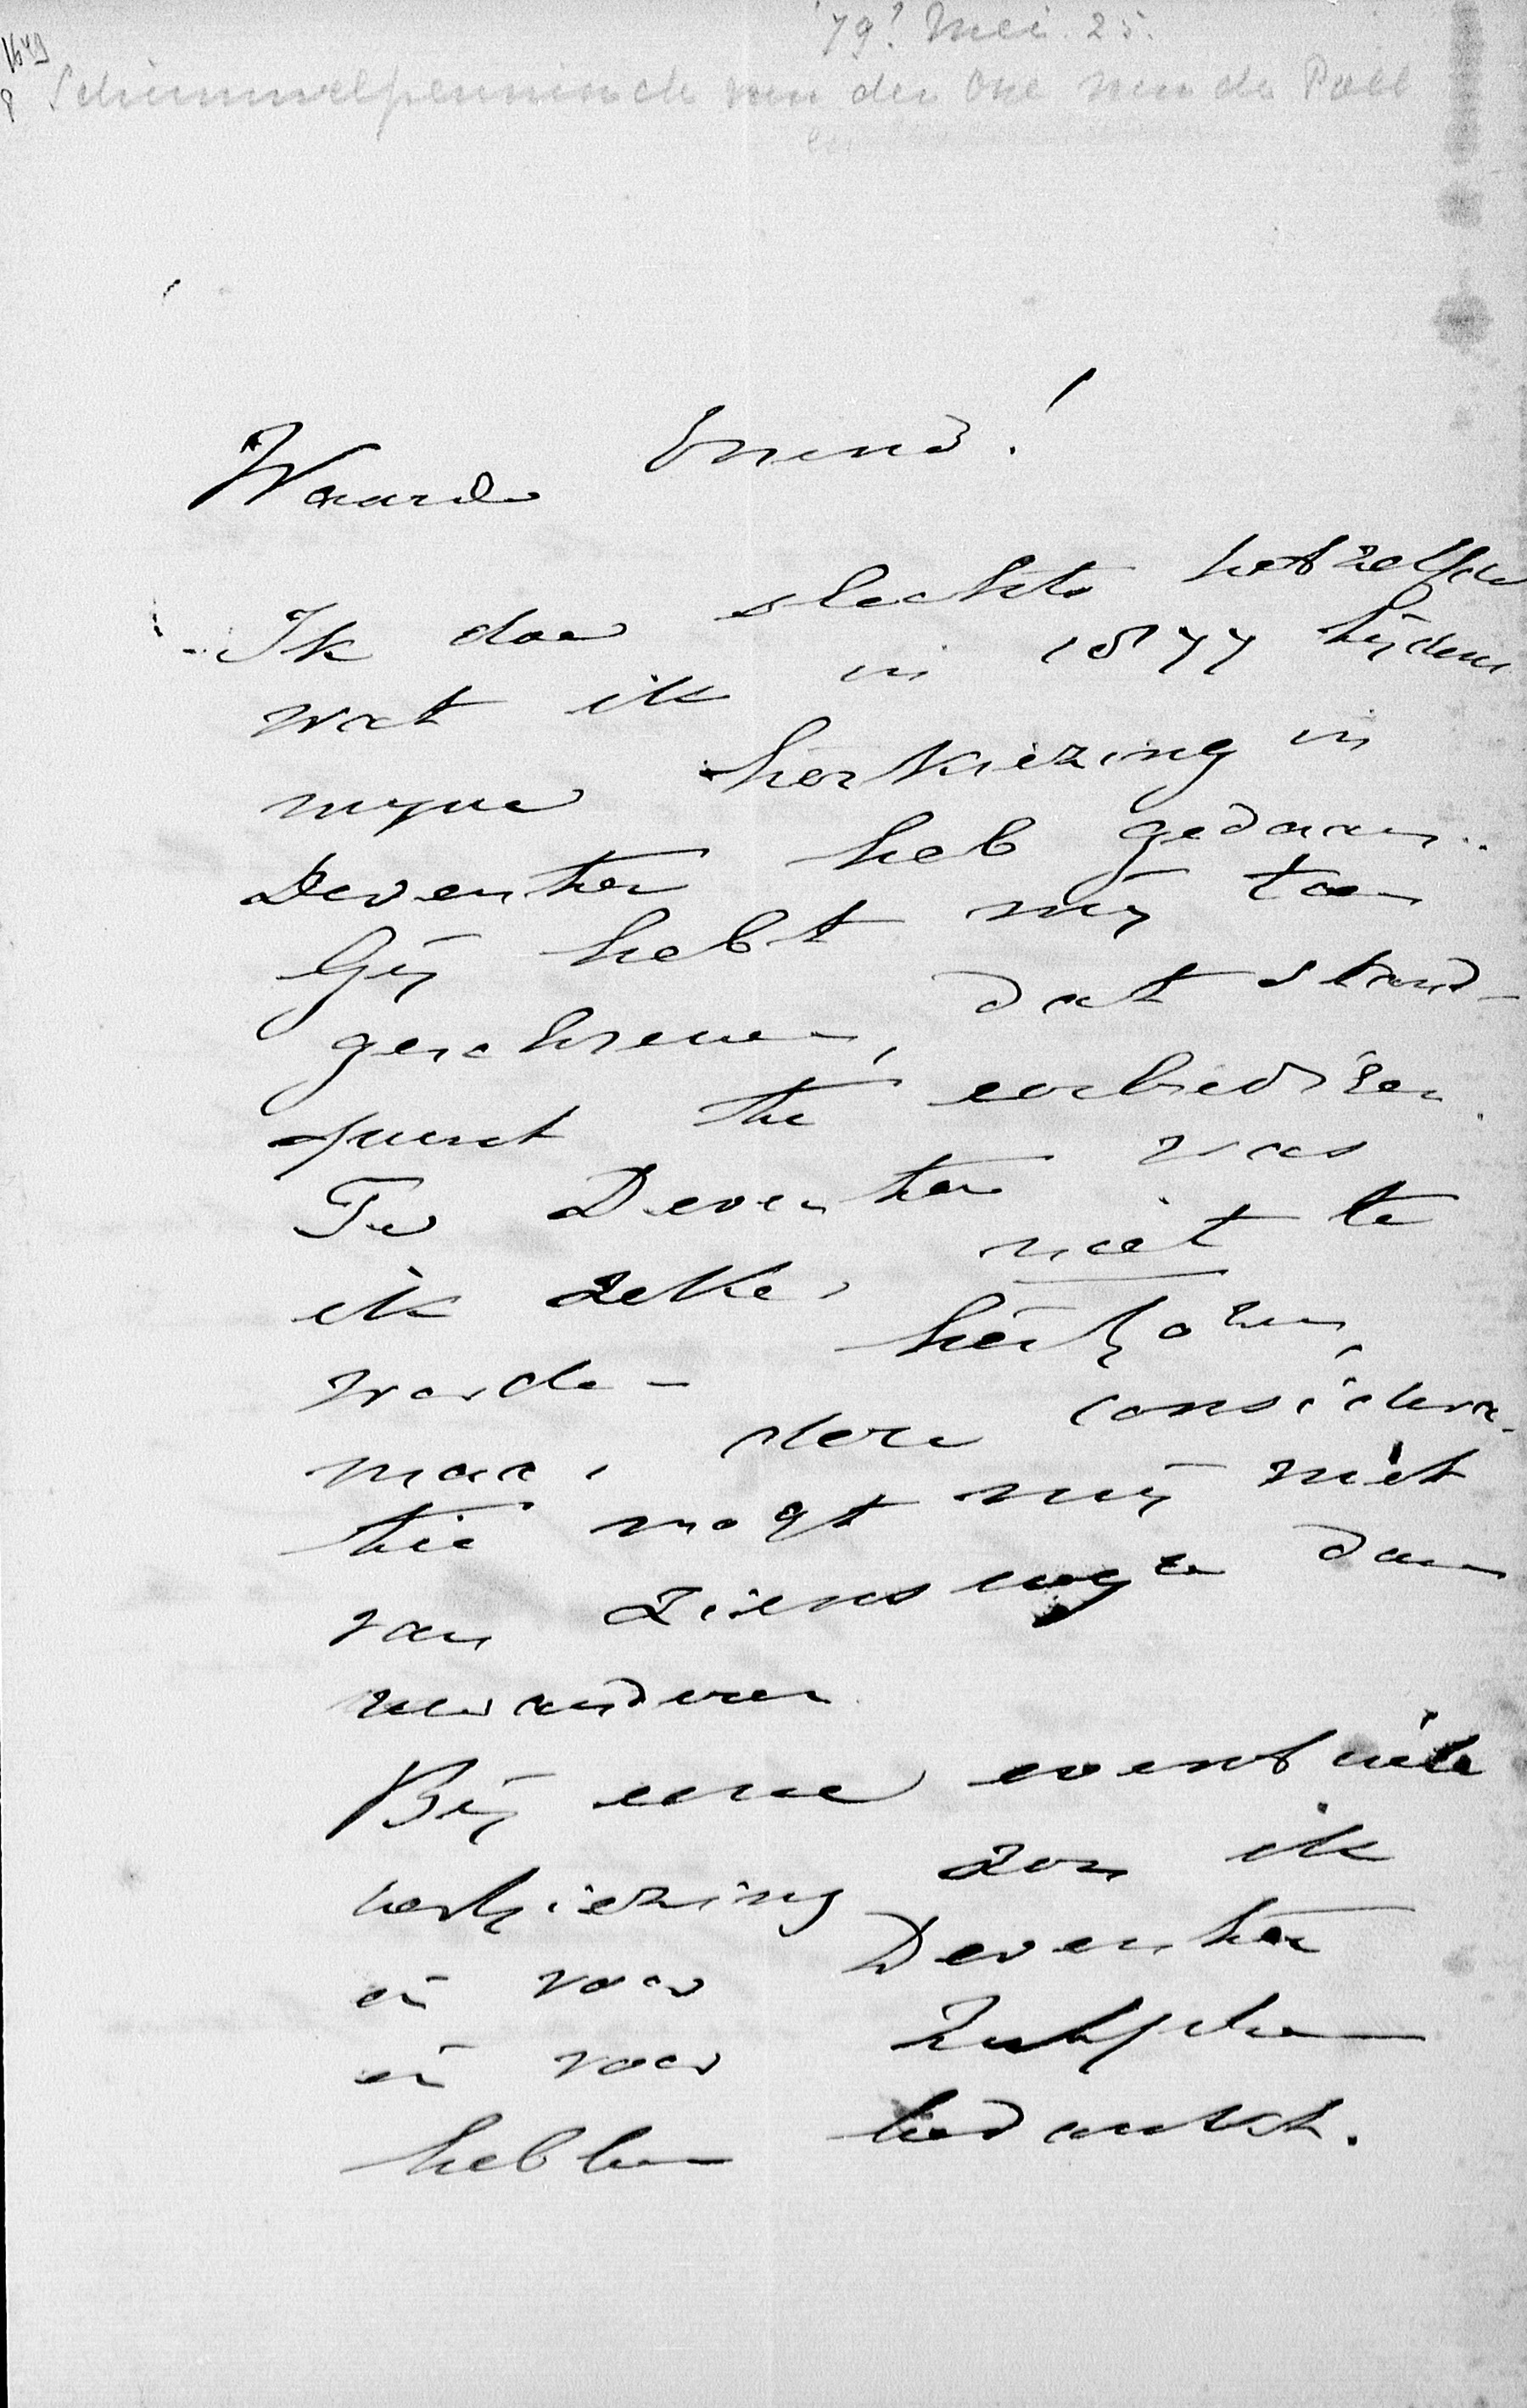 '79? Mei. 25.
Schimmelpenninck van der Oye van de Poll
Waarde Vriend!
Ik doe slechts hetzelfde
wat ik in 1877 tijdens
myne herkiezing in
Deventer heb gedaan.
Gij hebt mij toen
geschreven, dat stand-
punt te eerbiedigen.
Te Deventer was
ik zeker niet te
worden herkozen,
maar deze considera-
tie mogt mij niet
van zienswyze doen
veranderen
Bij eene eventuele
verkiezing zou ik
èn voor Deventer
èn voor Zutphen
hebben bedankt.